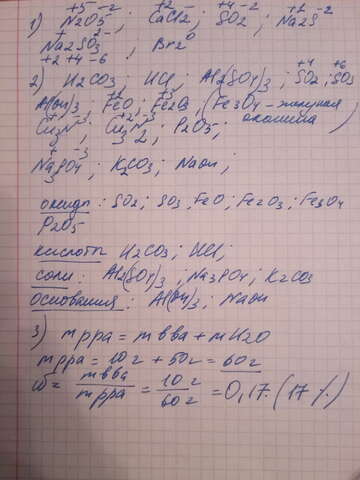 +5 -2 +2 - +4 -2 +2 -2
1) N2O5; CaCl2; SO2; Na2S
+ 2-
Na2SO3; Br2⁰
+2 +4 -6
2) H2CO3; HCl; Al2(SO4)3; SO2; SO3
Al(OH)3; FeO; Fe2O3, (Fe3O4 - железная
окалина)
P2O5;
Na3PO4; K2CO3; NaOH;
оксиды: SO2; SO3, FeO; Fe2O3; Fe3O4
P2O5
кислоты H2CO3; HCl;
соли: Al2(SO4)3, Na3PO4; K2CO3
основания: Al(OH)3; NaOH
3) mрра = mвва + mH2O
mрра = 10г + 50г = 60г
ω = mвва/mрра = 10г/60г = 0,17. (17%)